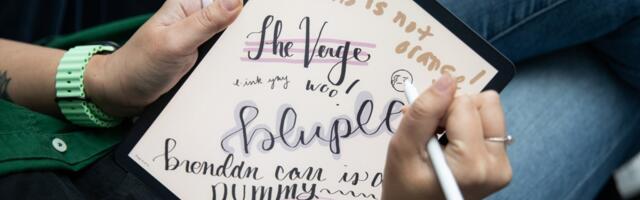 is not
orange!
The Verge
e-ink yay
woo!
blurple
brenddn carr is a
DUMMY